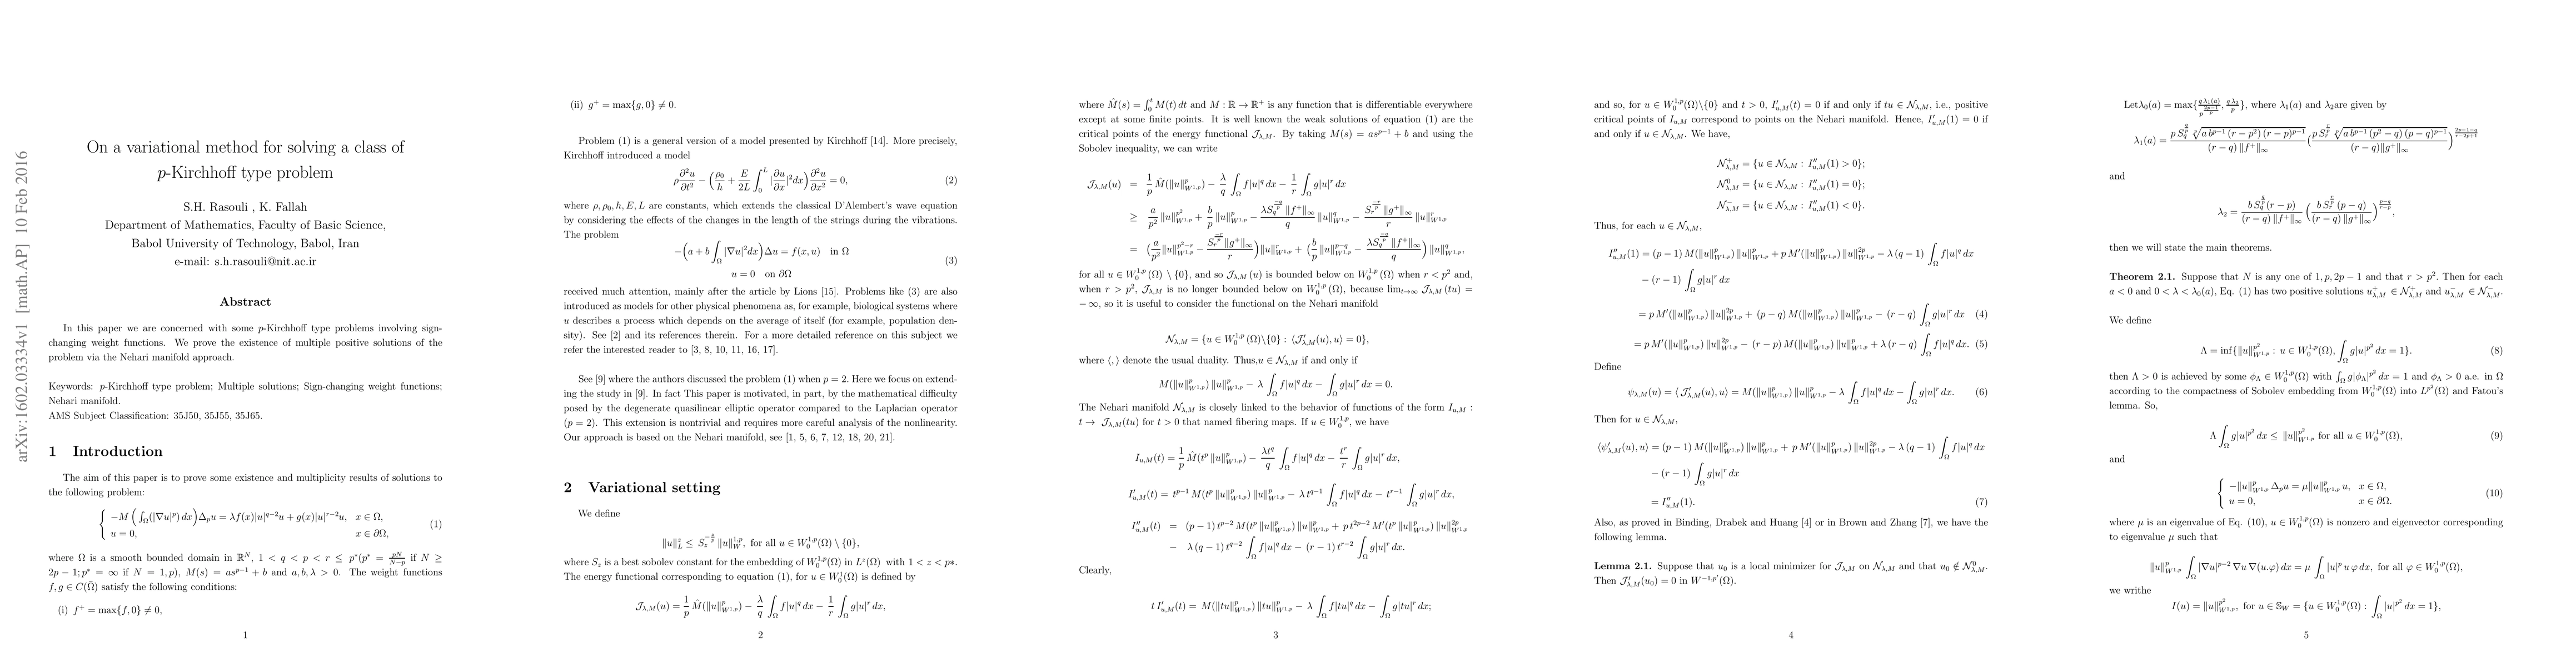 arXiv:1602.03334v1 [math.AP] 10 Feb 2016
On a variational method for solving a class of
p-Kirchhoff type problem
S.H. Rasouli , K. Fallah
Department of Mathematics, Faculty of Basic Science,
Babol University of Technology, Babol, Iran
e-mail: s.h.rasouli@nit.ac.ir
Abstract
In this paper we are concerned with some p-Kirchhoff type problems involving sign-
changing weight functions. We prove the existence of multiple positive solutions of the
problem via the Nehari manifold approach.
Keywords: p-Kirchhoff type problem; Multiple solutions; Sign-changing weight functions;
Nehari manifold.
AMS Subject Classification: 35J50, 35J55, 35J65.
1 Introduction
The aim of this paper is to prove some existence and multiplicity results of solutions to
the following problem:
{ −M ( ∫_Ω(|∇u|^p) dx ) Δ_p u = λf(x)|u|^{q−2}u + g(x)|u|^{r−2}u, x ∈ Ω,
u = 0, x ∈ ∂Ω, (1)
where Ω is a smooth bounded domain in ℝ^N, 1 < q < p < r ≤ p*(p* = pN/(N−p) if N ≥
2p − 1; p* = ∞ if N = 1, p), M(s) = as^{p−1} + b and a, b, λ > 0. The weight functions
f, g ∈ C(Ω̄) satisfy the following conditions:
(i) f⁺ = max{f, 0} ≠ 0,
1
(ii) g⁺ = max{g, 0} ≠ 0.
Problem (1) is a general version of a model presented by Kirchhoff [14]. More precisely,
Kirchhoff introduced a model
ρ ∂²u/∂t² − ( ρ₀/h + E/2L ∫_0^L |∂u/∂x|² dx ) ∂²u/∂x² = 0, (2)
where ρ, ρ₀, h, E, L are constants, which extends the classical D'Alembert's wave equation
by considering the effects of the changes in the length of the strings during the vibrations.
The problem
−( a + b ∫_Ω |∇u|² dx ) Δu = f(x, u) in Ω
u = 0 on ∂Ω (3)
received much attention, mainly after the article by Lions [15]. Problems like (3) are also
introduced as models for other physical phenomena as, for example, biological systems where
u describes a process which depends on the average of itself (for example, population den-
sity). See [2] and its references therein. For a more detailed reference on this subject we
refer the interested reader to [3, 8, 10, 11, 16, 17].
See [9] where the authors discussed the problem (1) when p = 2. Here we focus on extend-
ing the study in [9]. In fact This paper is motivated, in part, by the mathematical difficulty
posed by the degenerate quasilinear elliptic operator compared to the Laplacian operator
(p = 2). This extension is nontrivial and requires more careful analysis of the nonlinearity.
Our approach is based on the Nehari manifold, see [1, 5, 6, 7, 12, 18, 20, 21].
2 Variational setting
We define
‖u‖_L^z ≤ S_z^{−z/p} ‖u‖_W^{1,p}, for all u ∈ W_0^{1,p}(Ω) \ {0},
where S_z is a best sobolev constant for the embedding of W_0^{1,p}(Ω) in L^z(Ω) with 1 < z < p*.
The energy functional corresponding to equation (1), for u ∈ W_0^1(Ω) is defined by
J_{λ,M}(u) = 1/p M̂(‖u‖^p_{W^{1,p}}) − λ/q ∫_Ω f|u|^q dx − 1/r ∫_Ω g|u|^r dx,
2
where M̂(s) = ∫_0^t M(t) dt and M : ℝ → ℝ⁺ is any function that is differentiable everywhere
except at some finite points. It is well known the weak solutions of equation (1) are the
critical points of the energy functional J_{λ,M}. By taking M(s) = as^{p−1} + b and using the
Sobolev inequality, we can write
J_{λ,M}(u) = 1/p M̂(‖u‖^p_{W^{1,p}}) − λ/q ∫_Ω f|u|^q dx − 1/r ∫_Ω g|u|^r dx
≥ a/p² ‖u‖^{p²}_{W^{1,p}} + b/p ‖u‖^p_{W^{1,p}} − λS_q^{−q/p} ‖f⁺‖_∞ / q ‖u‖^q_{W^{1,p}} − S_r^{−r/p} ‖g⁺‖_∞ / r ‖u‖^r_{W^{1,p}}
= ( a/p² ‖u‖^{p²−r}_{W^{1,p}} − S_r^{−r/p} ‖g⁺‖_∞ / r ) ‖u‖^r_{W^{1,p}} + ( b/p ‖u‖^{p−q}_{W^{1,p}} − λS_q^{−q/p} ‖f⁺‖_∞ / q ) ‖u‖^q_{W^{1,p}},
for all u ∈ W_0^{1,p}(Ω) \ {0}, and so J_{λ,M} (u) is bounded below on W_0^{1,p}(Ω) when r < p² and,
when r > p², J_{λ,M} is no longer bounded below on W_0^{1,p}(Ω), because lim_{t→∞} J_{λ,M} (tu) =
−∞, so it is useful to consider the functional on the Nehari manifold
N_{λ,M} = {u ∈ W_0^{1,p}(Ω)\{0} : ⟨J′_{λ,M}(u), u⟩ = 0},
where ⟨, ⟩ denote the usual duality. Thus,u ∈ N_{λ,M} if and only if
M(‖u‖^p_{W^{1,p}}) ‖u‖^p_{W^{1,p}} − λ ∫_Ω f|u|^q dx − ∫_Ω g|u|^r dx = 0.
The Nehari manifold N_{λ,M} is closely linked to the behavior of functions of the form I_{u,M} :
t → J_{λ,M}(tu) for t > 0 that named fibering maps. If u ∈ W_0^{1,p}, we have
I_{u,M}(t) = 1/p M̂(t^p ‖u‖^p_{W^{1,p}}) − λt^q/q ∫_Ω f|u|^q dx − t^r/r ∫_Ω g|u|^r dx,
I′_{u,M}(t) = t^{p−1} M(t^p ‖u‖^p_{W^{1,p}}) ‖u‖^p_{W^{1,p}} − λ t^{q−1} ∫_Ω f|u|^q dx − t^{r−1} ∫_Ω g|u|^r dx,
I″_{u,M}(t) = (p − 1) t^{p−2} M(t^p ‖u‖^p_{W^{1,p}}) ‖u‖^p_{W^{1,p}} + p t^{2p−2} M′(t^p ‖u‖^p_{W^{1,p}}) ‖u‖^{2p}_{W^{1,p}}
− λ (q − 1) t^{q−2} ∫_Ω f|u|^q dx − (r − 1) t^{r−2} ∫_Ω g|u|^r dx.
Clearly,
t I′_{u,M}(t) = M(‖tu‖^p_{W^{1,p}}) ‖tu‖^p_{W^{1,p}} − λ ∫_Ω f|tu|^q dx − ∫_Ω g|tu|^r dx;
3
and so, for u ∈ W_0^{1,p}(Ω)\{0} and t > 0, I′_{u,M}(t) = 0 if and only if tu ∈ N_{λ,M}, i.e., positive
critical points of I_{u,M} correspond to points on the Nehari manifold. Hence, I′_{u,M}(1) = 0 if
and only if u ∈ N_{λ,M}. We have,
N⁺_{λ,M} = {u ∈ N_{λ,M} : I″_{u,M}(1) > 0};
N⁰_{λ,M} = {u ∈ N_{λ,M} : I″_{u,M}(1) = 0};
N⁻_{λ,M} = {u ∈ N_{λ,M} : I″_{u,M}(1) < 0}.
Thus, for each u ∈ N_{λ,M},
I″_{u,M}(1) = (p − 1) M(‖u‖^p_{W^{1,p}}) ‖u‖^p_{W^{1,p}} + p M′(‖u‖^p_{W^{1,p}}) ‖u‖^{2p}_{W^{1,p}} − λ (q − 1) ∫_Ω f|u|^q dx
− (r − 1) ∫_Ω g|u|^r dx
= p M′(‖u‖^p_{W^{1,p}}) ‖u‖^{2p}_{W^{1,p}} + (p − q) M(‖u‖^p_{W^{1,p}}) ‖u‖^p_{W^{1,p}} − (r − q) ∫_Ω g|u|^r dx (4)
= p M′(‖u‖^p_{W^{1,p}}) ‖u‖^{2p}_{W^{1,p}} − (r − p) M(‖u‖^p_{W^{1,p}}) ‖u‖^p_{W^{1,p}} + λ (r − q) ∫_Ω f|u|^q dx. (5)
Define
ψ_{λ,M}(u) = ⟨ J′_{λ,M}(u), u⟩ = M(‖u‖^p_{W^{1,p}}) ‖u‖^p_{W^{1,p}} − λ ∫_Ω f|u|^q dx − ∫_Ω g|u|^r dx. (6)
Then for u ∈ N_{λ,M},
⟨ψ′_{λ,M}(u), u⟩ = (p − 1) M(‖u‖^p_{W^{1,p}}) ‖u‖^p_{W^{1,p}} + p M′(‖u‖^p_{W^{1,p}}) ‖u‖^{2p}_{W^{1,p}} − λ (q − 1) ∫_Ω f|u|^q dx
− (r − 1) ∫_Ω g|u|^r dx
= I″_{u,M}(1). (7)
Also, as proved in Binding, Drabek and Huang [4] or in Brown and Zhang [7], we have the
following lemma.
Lemma 2.1. Suppose that u₀ is a local minimizer for J_{λ,M} on N_{λ,M} and that u₀ ∉ N⁰_{λ,M}.
Then J′_{λ,M}(u₀) = 0 in W^{−1,p′}(Ω).
4
Letλ₀(a) = max{ q λ₁(a)/p^{2p−1}, q λ₂/p }, where λ₁(a) and λ₂are given by
λ₁(a) = p S_q^{q/p} ᵖ√(a b^{p−1} (r − p²) (r − p)^{p−1}) / ((r − q) ‖f⁺‖_∞) ( p S_r^{r/p} ᵖ√(a b^{p−1} (p² − q) (p − q)^{p−1}) / ((r − q)‖g⁺‖_∞) )^{(2p−1−q)/(r−2p+1)}
and
λ₂ = b S_q^{q/p}(r − p) / ((r − q) ‖f⁺‖_∞) ( b S_r^{r/p} (p − q) / ((r − q) ‖g⁺‖_∞) )^{(p−q)/(r−p)},
then we will state the main theorems.
Theorem 2.1. Suppose that N is any one of 1, p, 2p − 1 and that r > p². Then for each
a < 0 and 0 < λ < λ₀(a), Eq. (1) has two positive solutions u⁺_{λ,M} ∈ N⁺_{λ,M} and u⁻_{λ,M} ∈ N⁻_{λ,M}.
We define
Λ = inf{‖u‖^{p²}_{W^{1,p}} : u ∈ W_0^{1,p}(Ω), ∫_Ω g|u|^{p²} dx = 1}. (8)
then Λ > 0 is achieved by some φ_Λ ∈ W_0^{1,p}(Ω) with ∫_Ω g|φ_Λ|^{p²} dx = 1 and φ_Λ > 0 a.e. in Ω
according to the compactness of Sobolev embedding from W_0^{1,p}(Ω) into L^{p²}(Ω) and Fatou's
lemma. So,
Λ ∫_Ω g|u|^{p²} dx ≤ ‖u‖^{p²}_{W^{1,p}} for all u ∈ W_0^{1,p}(Ω), (9)
and
{ −‖u‖^p_{W^{1,p}} Δ_p u = μ‖u‖^p_{W^{1,p}} u, x ∈ Ω,
u = 0, x ∈ ∂Ω. (10)
where μ is an eigenvalue of Eq. (10), u ∈ W_0^{1,p}(Ω) is nonzero and eigenvector corresponding
to eigenvalue μ such that
‖u‖^p_{W^{1,p}} ∫_Ω |∇u|^{p−2} ∇u ∇(u.φ) dx = μ ∫_Ω |u|^p u φ dx, for all φ ∈ W_0^{1,p}(Ω),
we writhe
I(u) = ‖u‖^{p²}_{W^{1,p}}, for u ∈ 𝕊_W = {u ∈ W_0^{1,p}(Ω) : ∫_Ω |u|^{p²} dx = 1},
5